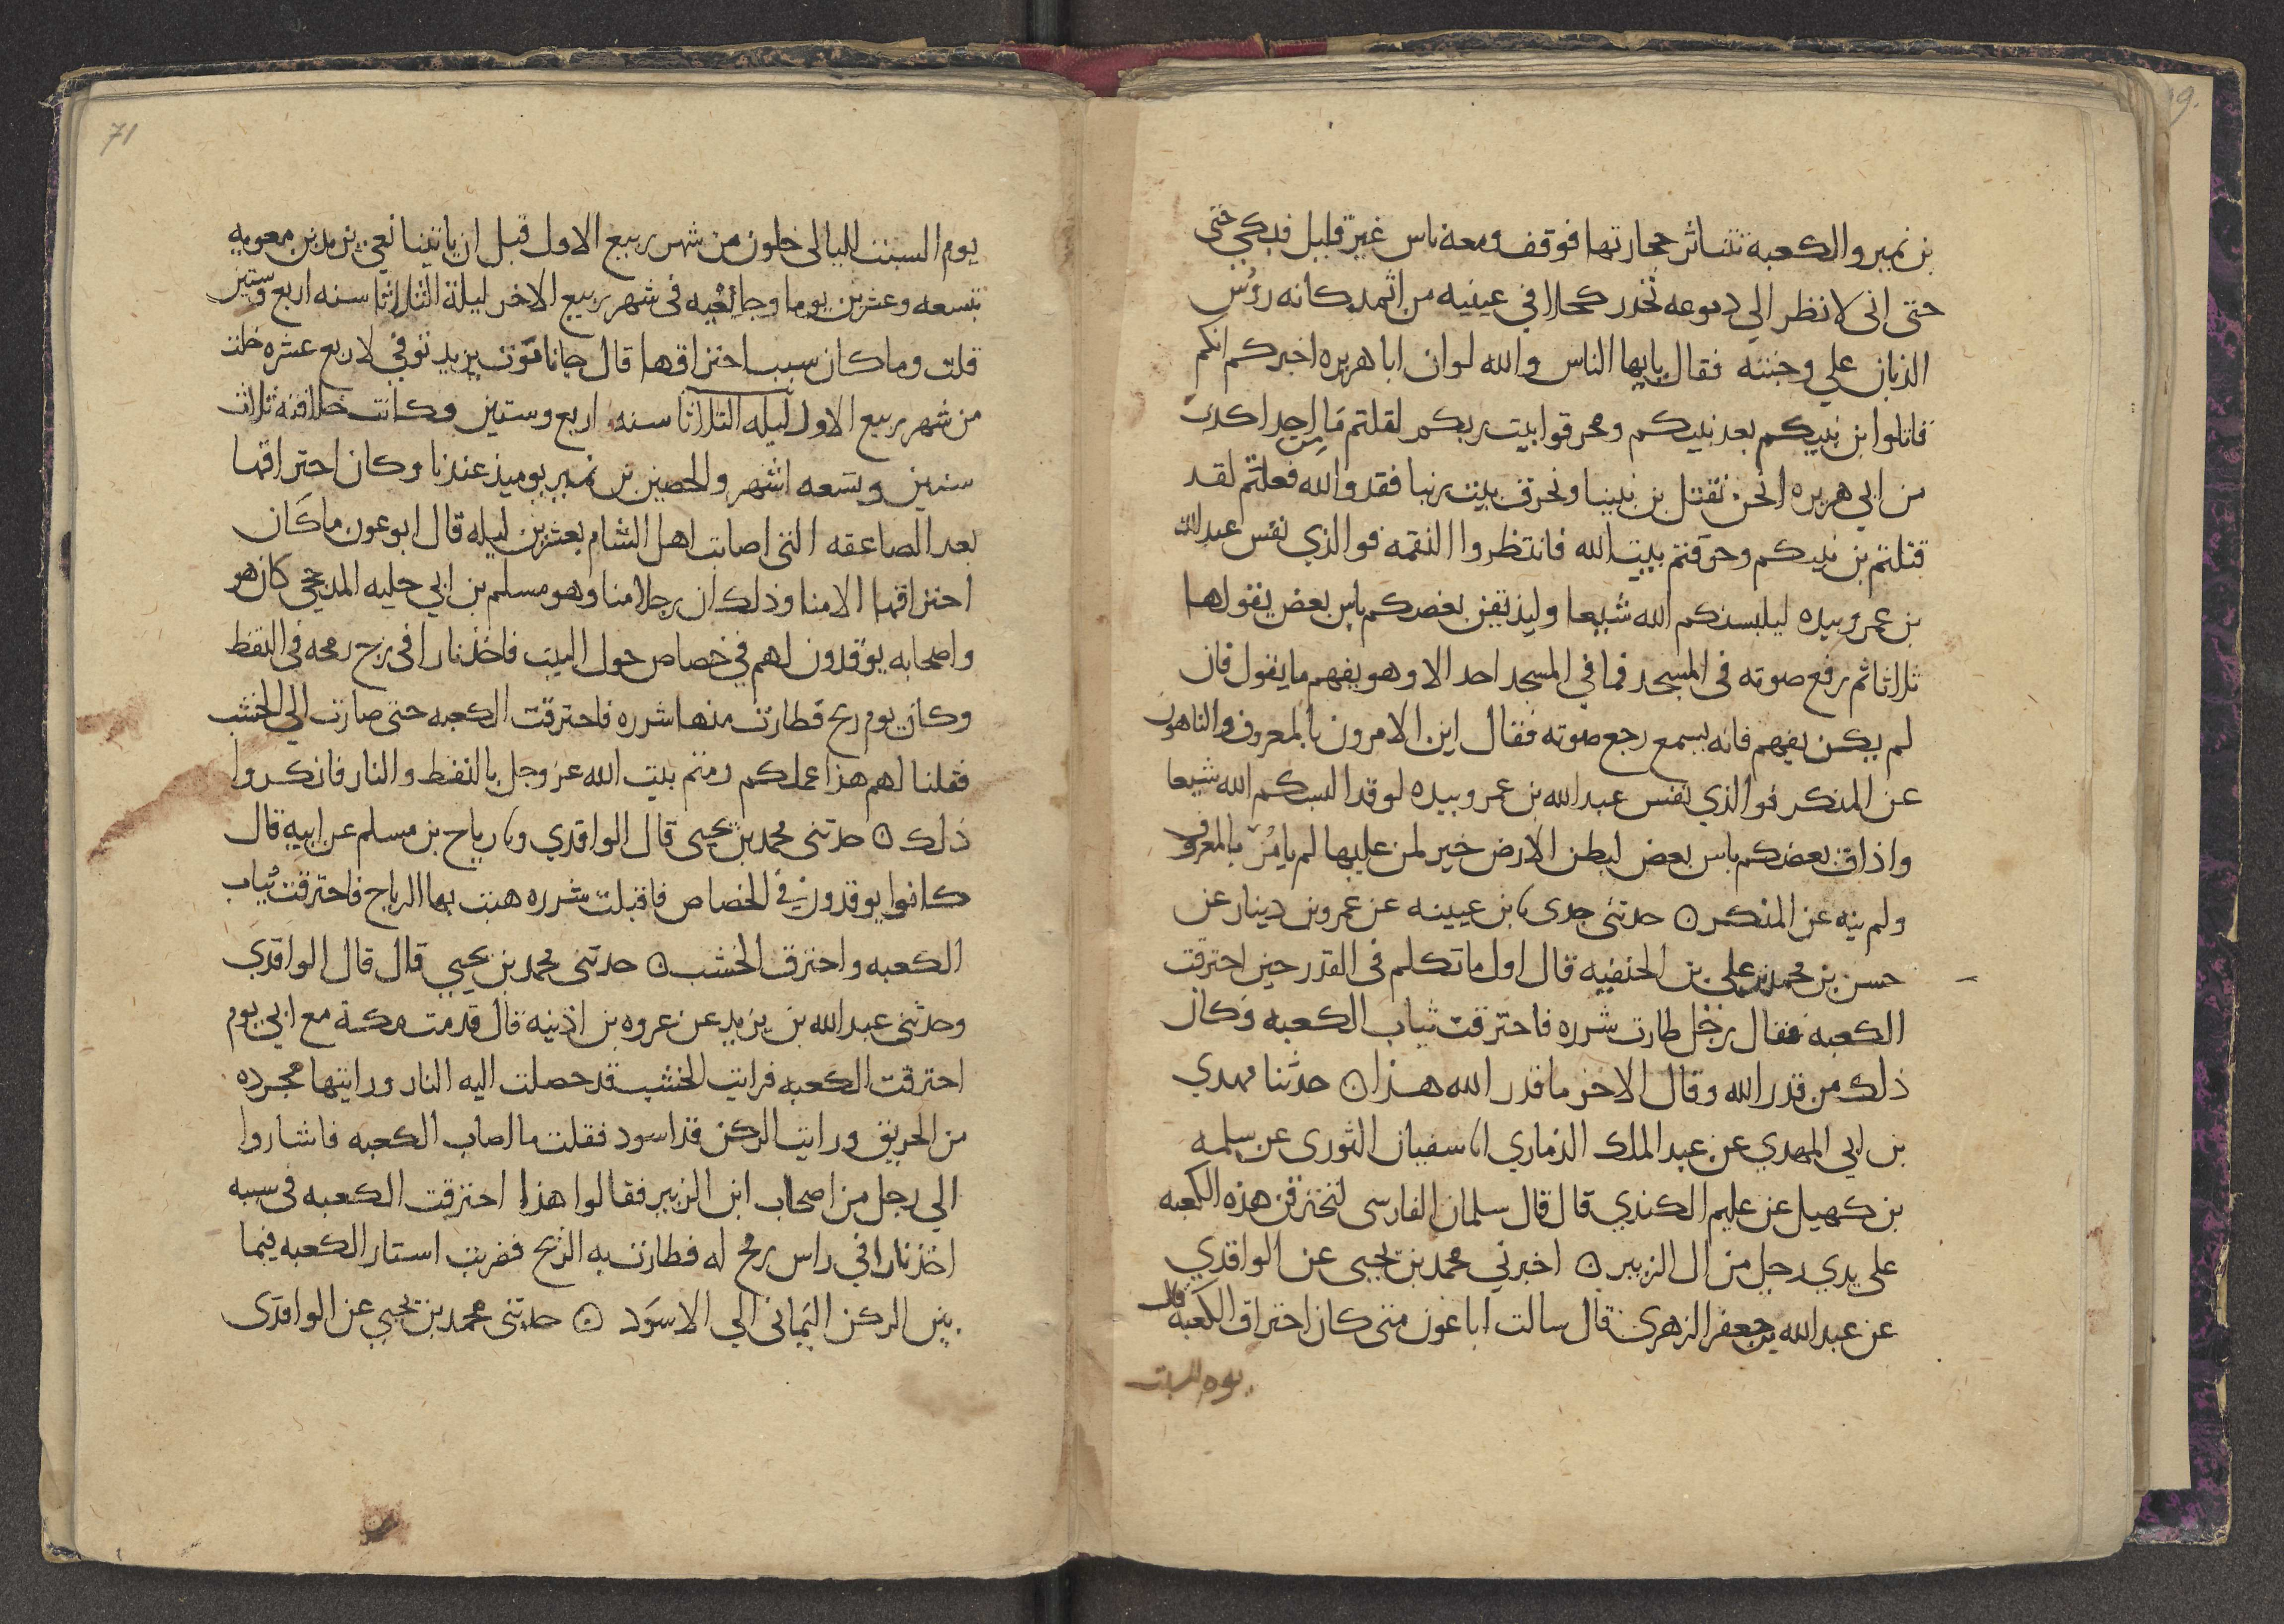 بن نمير والكعبه تتناثر حجارتها فوقف ومعه ناس غير قليل فبكي حتى
حتى اني لانظر الي دموعه تحدر كحلا في عينيه من اثمد كانه رؤس
الذبان علي وجنته فقال يايها الناس والله لو ان ابا هريره اخبركم انكم
قاتلوا بن نبيكم بعد نبيكم ومحرقوا بيت ربكم لقلتم ما من احد اكذب
من ابي هريره انحن نقتل بن نبينا ونحرق بيت ربنا فقد والله فعلتم لقد
قتلتم بن نبيكم وحرقتم بيت الله فانتظروا النقمه فوالذي نفس عبد الله
بن عمرو بيده ليلبسنكم الله شيعا وليذيقن بعضكم باس بعض يقولها
ثلاثا ثم رفع صوته في المسجد فما في المسجد احد الا وهو يفهم ما يقول فان
لم يكن يفهم فانه يسمع رجع صوته فقال اين الامرون بالمعروف والناهون
عن المنكر فوالذي نفس عبد الله بن عمرو بيده لو قد البسكم الله شيعا
واذاق بعضكم باس بعض لبطن الارض خير لمن عليها لم يامر بالمعروف
ولم ينه عن المنكر ۞ حدثني جدي نا بن عيينه عن عمرو بن دينار عن
حسن بن محمد بن علي بن الحنفيه قال اول ما تكلم في القدر حين احترقت
الكعبه فقال رجل طارت شرره فاحترقت ثياب الكعبه وكان
ذلك من قدر الله وقال الاخر ما قدر الله هذا ۞ حدثنا مهدي
بن ابي المهدي عن عبد الملك الذماري انا سفيان الثوري عن سلمه
بن كهيل عن عليم الكندي قال قال سلمان الفارسي لتحترقن هذه الكعبه
علي يدي رجل من ال الزبير ۞ اخبرني محمد بن يحيى عن الواقدي
عن عبد الله بن جعفر الزهري قال سالت ابا عون متى كان احتراق الكعبه قال
يوم السبت
71
يوم السبت لليالي خلون من شهر ربيع الاول قبل ان ياتينا نعي يزيد بن معويه
بتسعه وعشرين يوما وجا نعيه في شهر ربيع الاخر ليلة الثلاثا سنه اربع وستين
قلت وما كان سبب احتراقها قال جانا موت يزيد توفي لاربع عشره خلت
من شهر ربيع الاول ليله الثلاثا سنه اربع وستين وكانت خلافته ثلاث
سنين وتسعه اشهر والحصين بن نمير يوميذ عندنا وكان احتراقها
بعد الصاعقه التي اصابت اهل الشام بعشرين ليله قال ابو عون ما كان
احتراقها الا منا وذلك ان رجلا منا وهو مسلم بن ابي خليه المدحجي كان هو
واصحابه يوقدون لهم في خصاص حول البيت فاخذ نارا في زج رمحه في النفط
وكان يوم ريح فطارت منها شرره فاحترقت الكعبه حتى صارت الي الخشب
فقلنا لهم هذا عملكم رميتم بيت الله عز وجل بالنفط والنار فانكروا
ذلك ۞ حدثني محمد بن يحيى قال الواقدي ونا رياح بن مسلم عن ابيه قال
كانوا يوقدون في الخصاص فاقبلت شرره هبت بها الرياح فاحترقت ثياب
الكعبه واحترق الخشب ۞ حدثني محمد بن يحيى قال قال الواقدي
وحدثني عبد الله بن يزيد عن عروه بن اذينه قال قدمت مكة مع ابي يوم
احترقت الكعبه فرايت الخشب قد خصلت اليه النار ورايتها مجرده
من الحريق ورايت الركن قد اسود فقلت ما اصاب الكعبه فاشاروا
الي رجل من اصحاب ابن الزبير فقالوا هذا احترقت الكعبه في سببه
اخذ نارا في راس رمح له فطارت به الريح فضربت استار الكعبه فيما
بين الركن اليماني الي الاسود ۞ حدثني محمد بن يحيى عن الواقدي